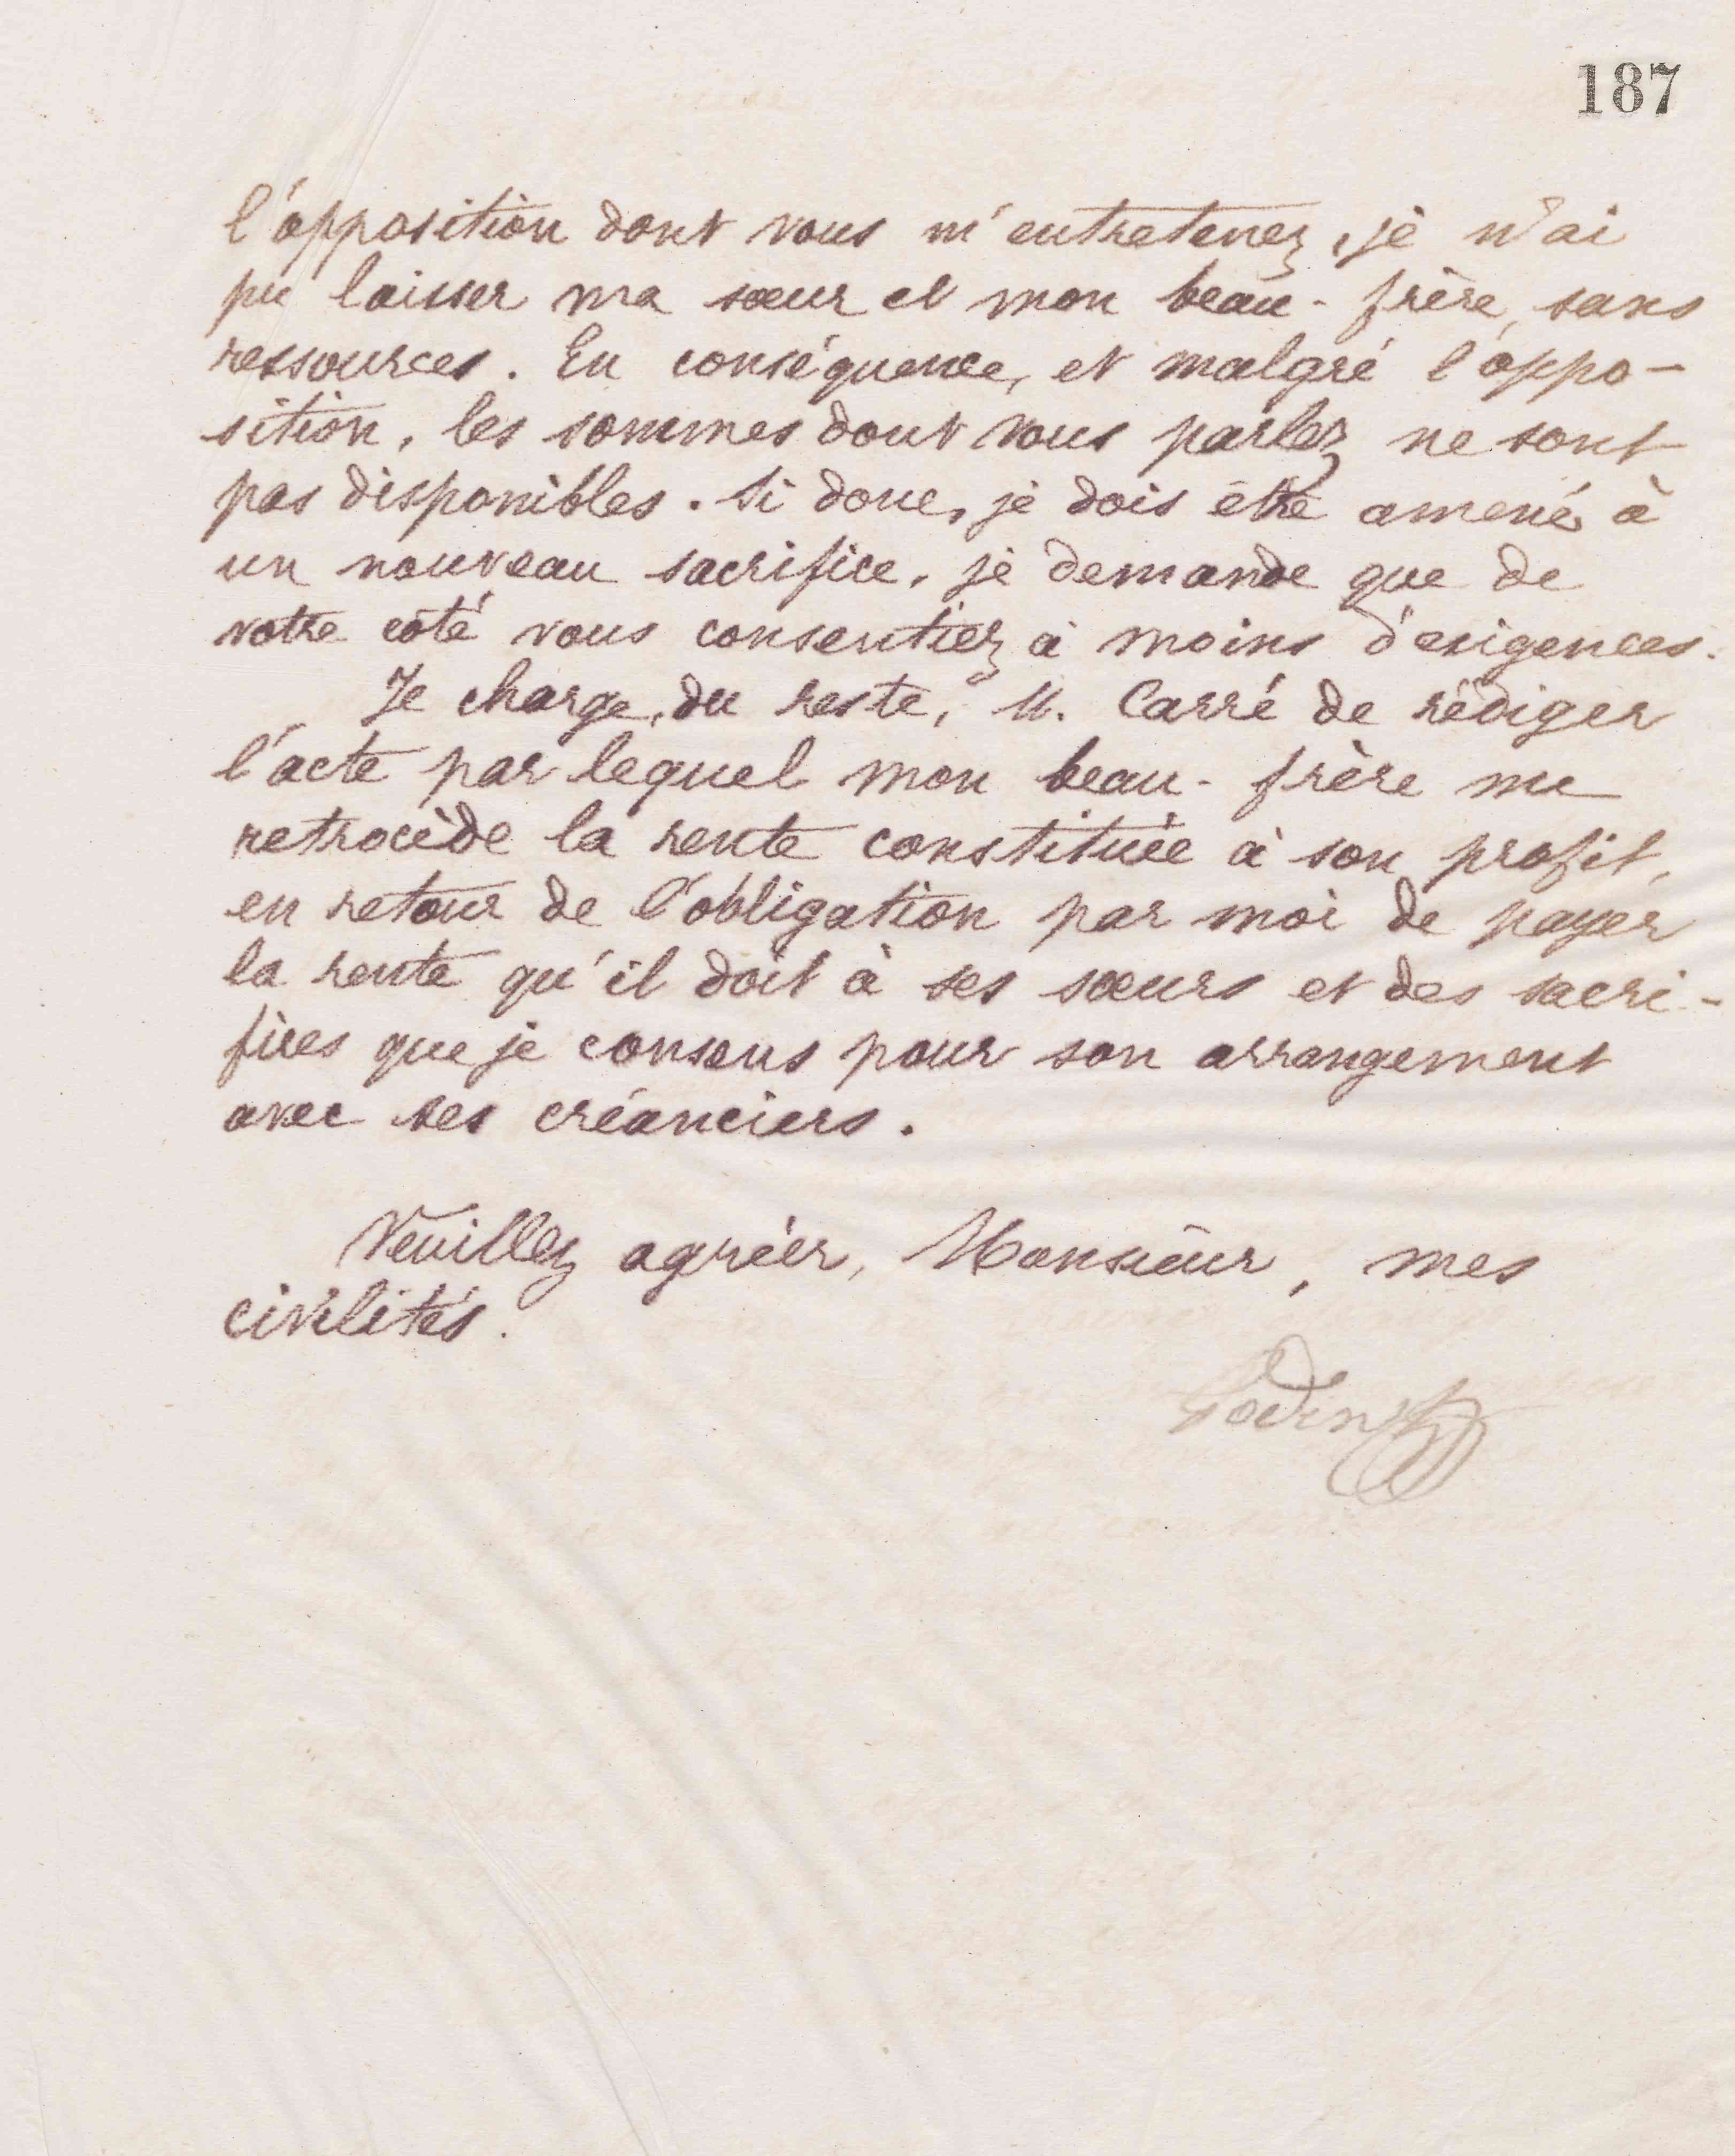 187
l'opposition dont vous m'entretenez, je n'ai
pu laisser ma sœur et mon beau-frère, sans
ressources. En conséquence, et malgré l'oppo-
sition, les sommes dont vous parlez ne sont
pas disponibles. Si donc, je dois être amené à
un nouveau sacrifice, je demande que de
votre côté vous consentiez à moins d'exigences.
Je charge, du reste, M. Carré de rédiger
l'acte par lequel mon beau-frère me
retrocède la rente constituée à son profit,
en retour de l'obligation par moi de payer
la rente qu'il doit à ses sœurs et des sacri-
fices que je consens pour son arrangement
avec ses créanciers.
Veuillez agréer, Monsieur, mes
civilités.
Godin